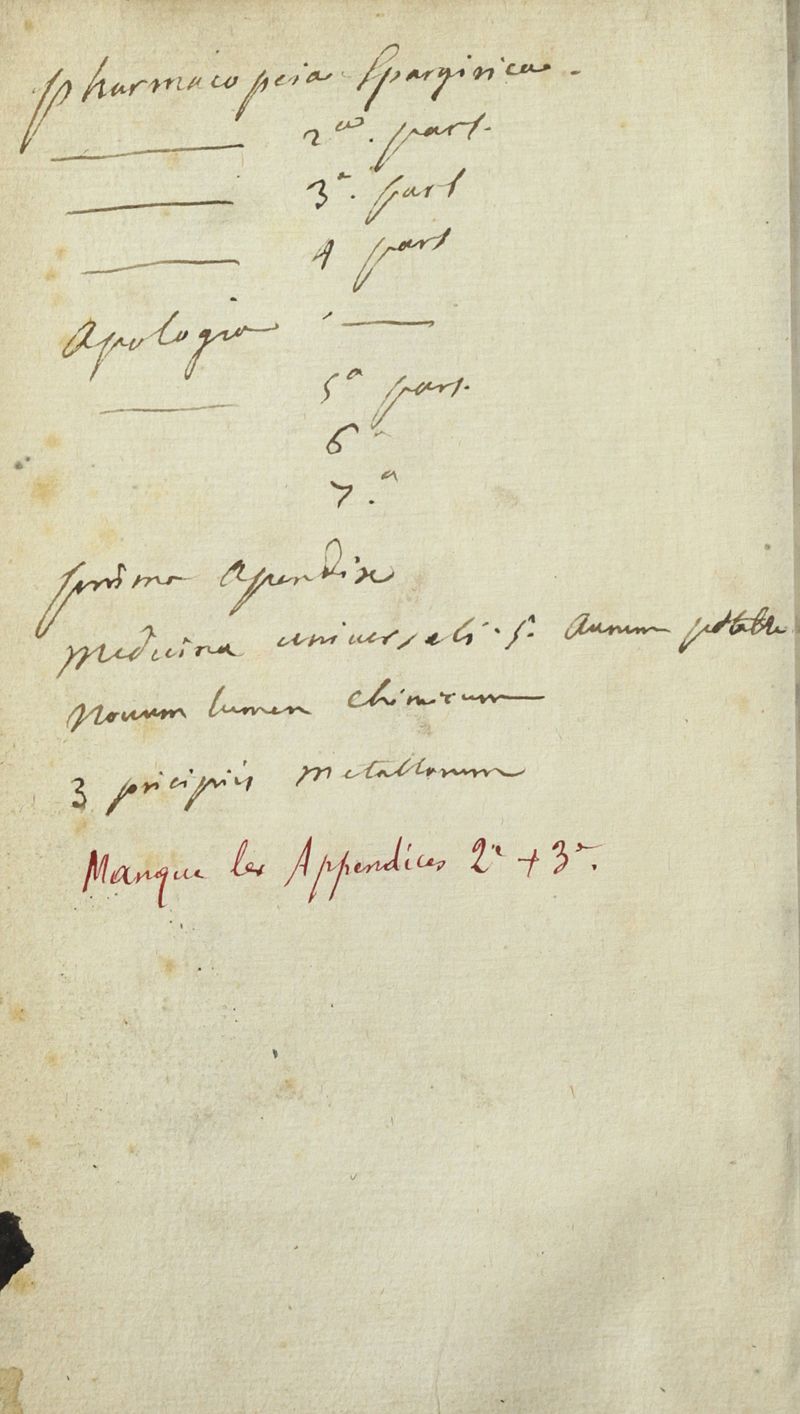 pharmacopeia Spargirica.
——— 2a. part.
——— 3a. part
——— 4 part
Apologia ———
——— 5a part.
6a
7.a
prima Apendix
Medicina universali. s. Aurum potabile
Novum lumen Chimicum
3 pricipiis metallorum
Manque les Appendices 2a + 3a.